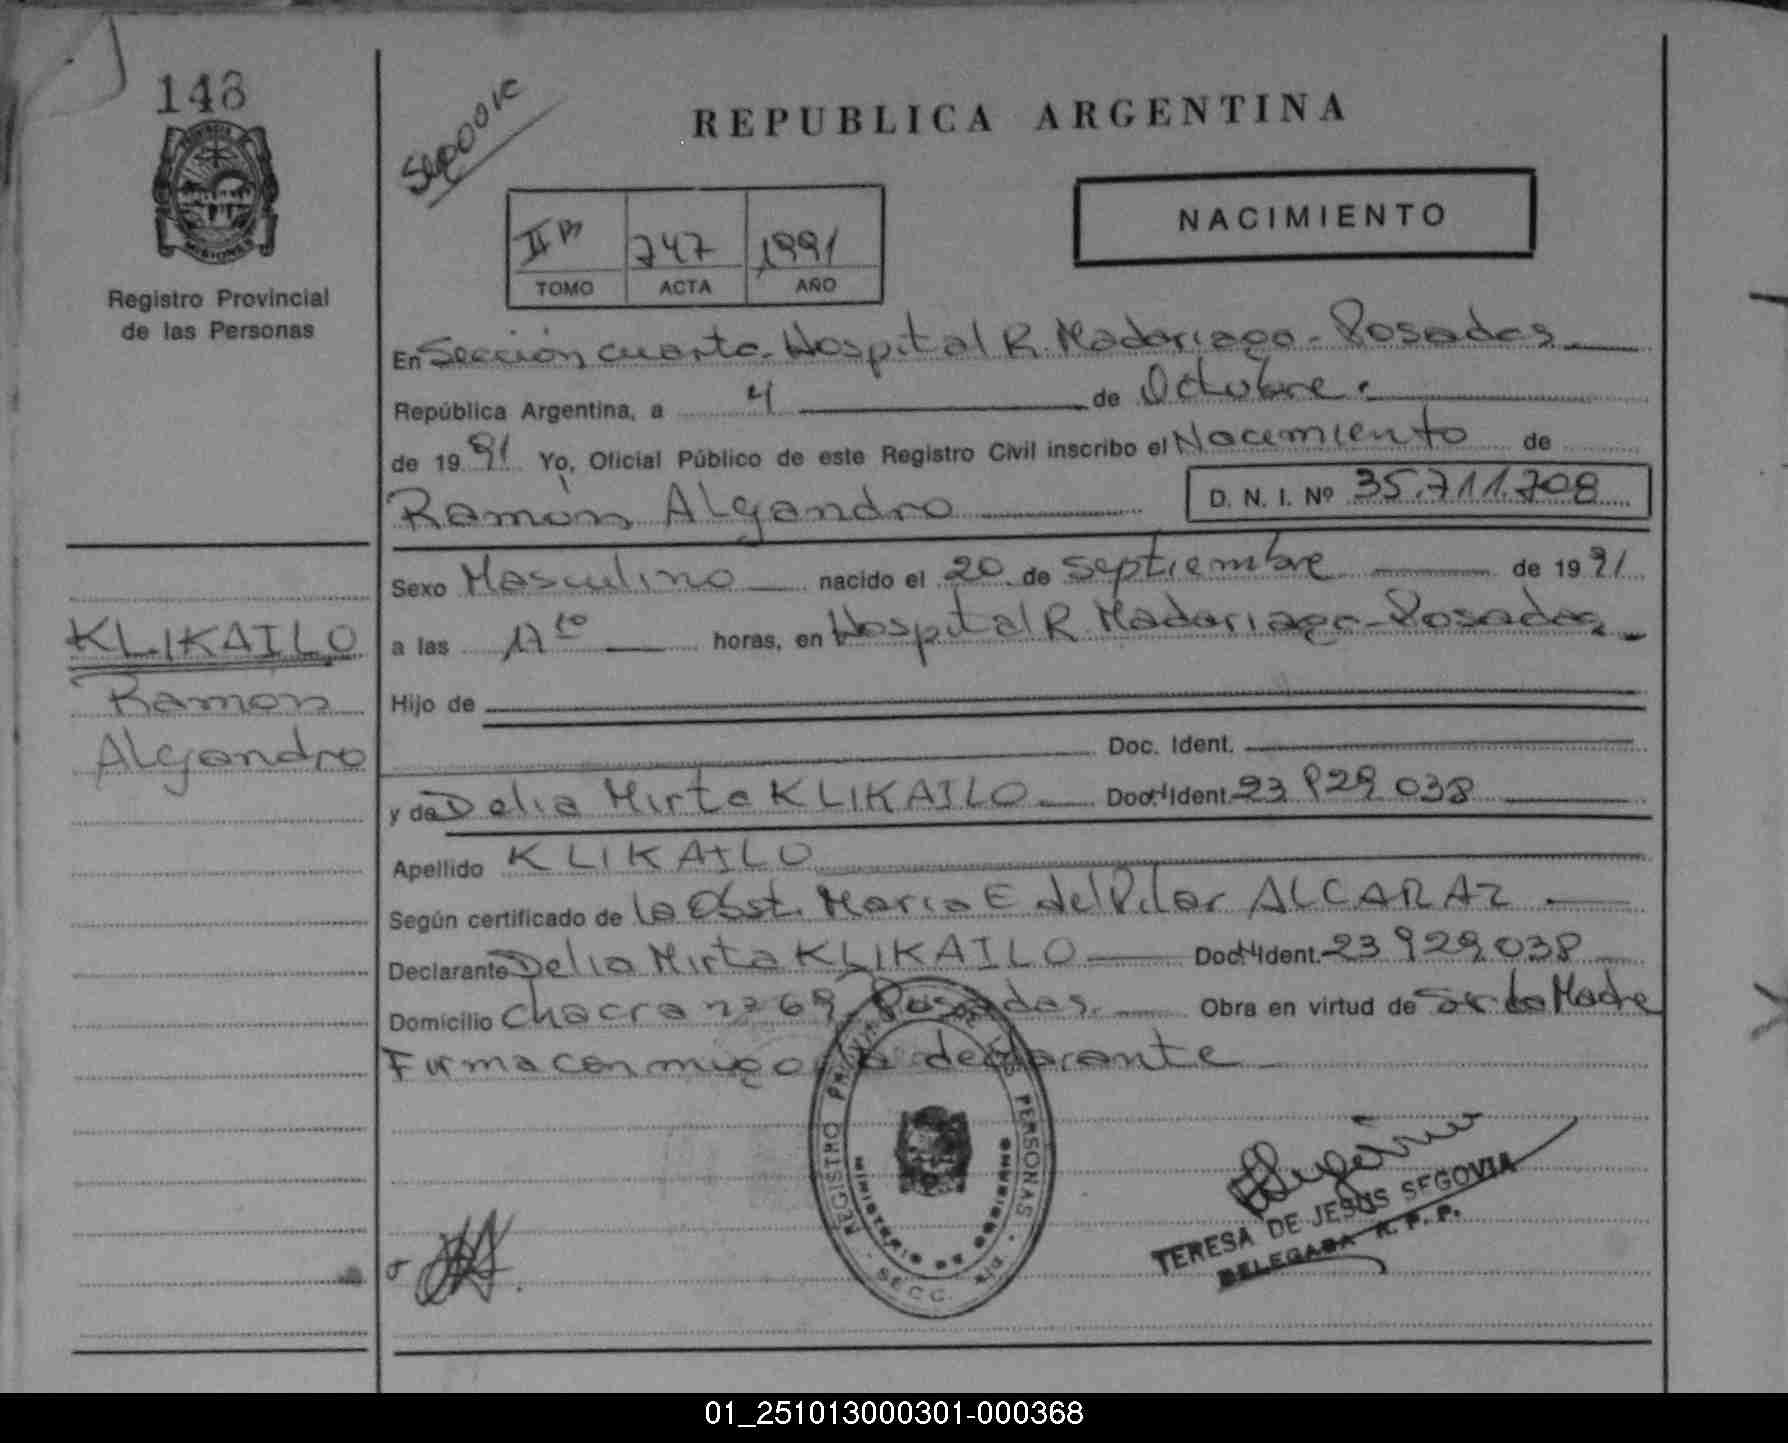 148
REPUBLICA ARGENTINA
NACIMIENTO
II 747 1991
TOMO ACTA AÑO
Registro Provincial
de las Personas
En Sección cuarta. Hospital R. Madariaga - Posadas
República Argentina, a 4 de Octubre.
de 1991 Yo, Oficial Público de este Registro Civil inscribo el Nacimiento de
Ramón Alejandro D. N. I. Nº 35.711.708
Sexo Masculino nacido el 20 de septiembre de 1991
a las horas, en Hospital R. Madariaga - Posadas
KLIKAILO
Ramon
Alejandro
Hijo de
Doc. Ident.
y de Delia Mirta KLIKAILO Doc. Ident. 23 929 038
Apellido KLIKAILO
Según certificado de la Obst. Maria E del Pilar ALCARAZ
Declarante Delia Mirta KLIKAILO Doc. Ident. 23 929 038
Domicilio Chacra nº 69. Posadas. Obra en virtud de ser la Madre
Firma conmigo la declarante
REGISTRO PROVINCIAL DE LAS PERSONAS
MINISTERIO DE GOBIERNO
SECC.
TERESA DE JESUS SEGOVIA
DELEGADA R. P. P.
01_251013000301-000368